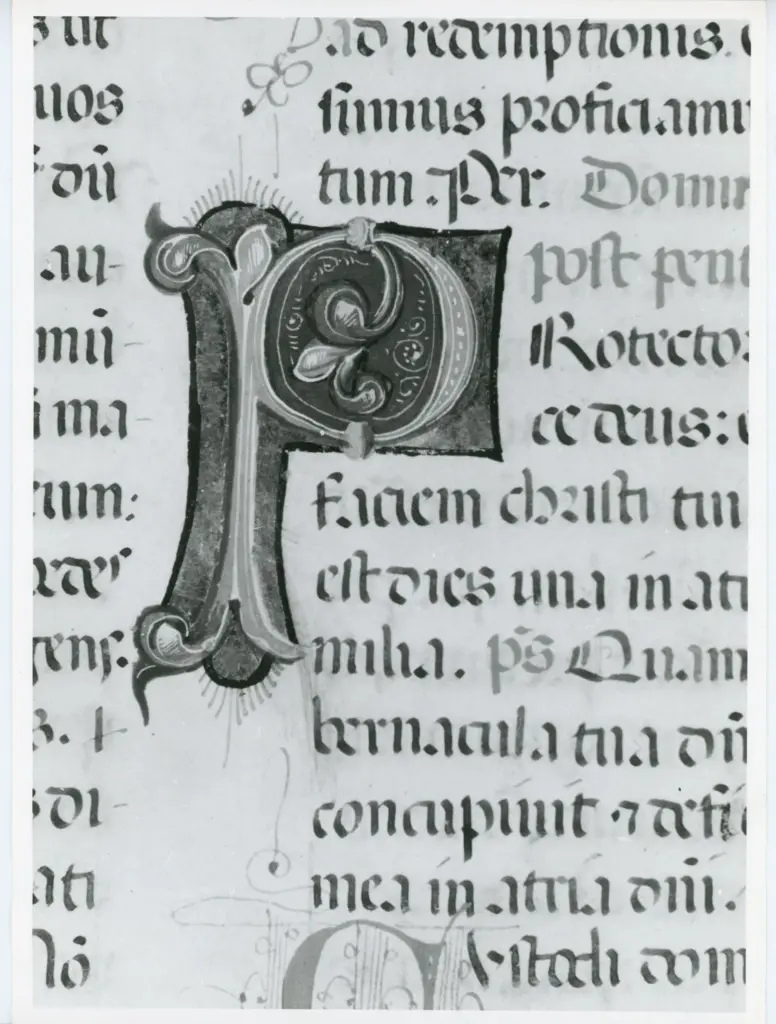 s ut
uos
dn̄
au-
mū-
i ma-
eum:
edes
gens:
s. +
s di-
ati
ad redemptionis.
simus proficiamu
tum. Per. Domin
post pent
P
Rotecto
ce deus:
faciem christi tui
est dies una in atri
milia. p̄s Quam
bernacula tua dn̄
concupiuit ⁊ defi
mea in atria dn̄i.
Custodi dom